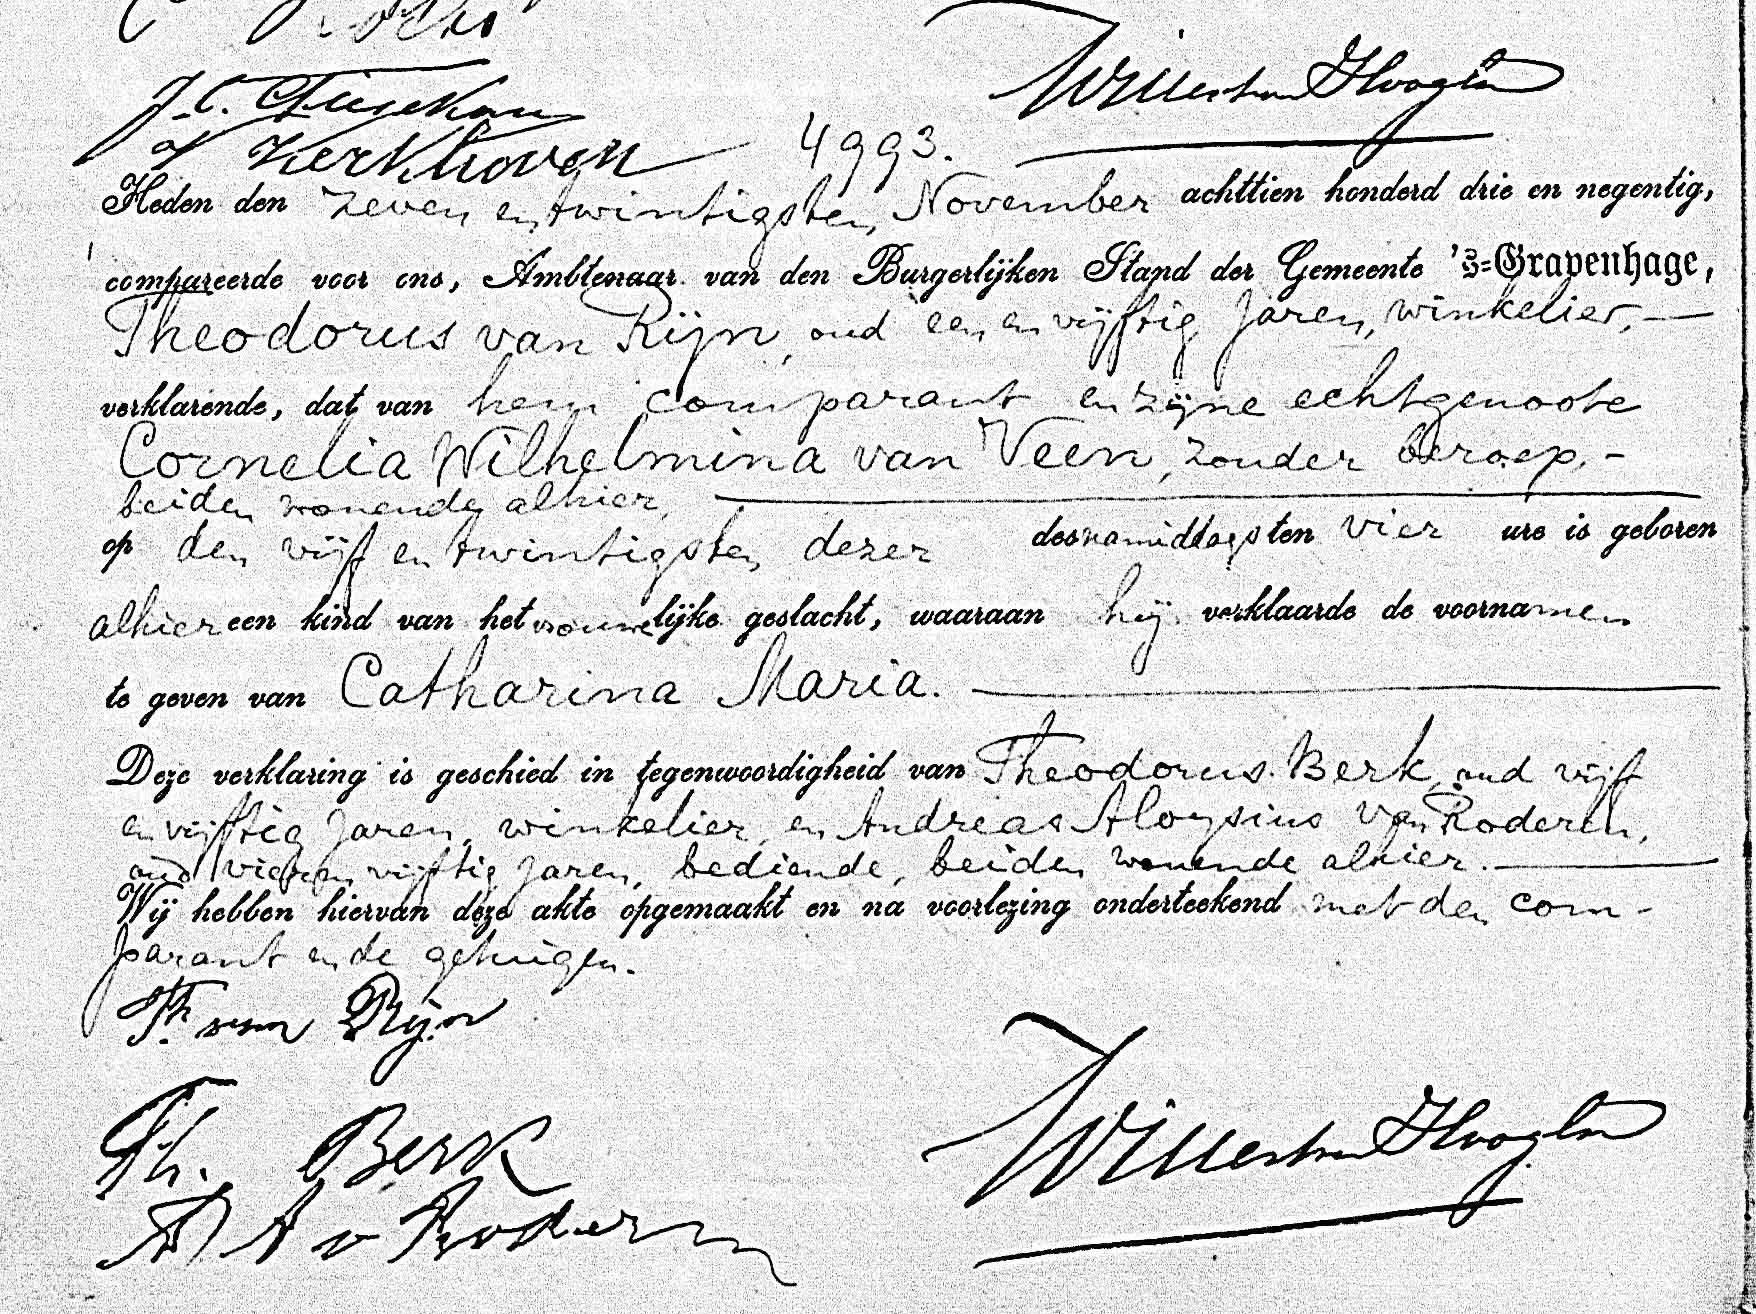 J. C.
Kerkhoven
4993.
Heden den zeven en twintigsten November achttien honderd drie en negentig,
compareerde voor ons, Ambtenaar van den Burgerlijken Stand der Gemeente 's=Gravenhage,
Theodorus van Rijn, oud een en vijftig jaren, winkelier, —
verklarende, dat van hem comparant en zijne echtgenoote
Cornelia Wilhelmina van Veen, zonder beroep, -
beiden wonende alhier,
op den vijf en twintigsten dezer des namiddags ten vier ure is geboren
alhier een kind van het vrouwelijke geslacht, waaraan hij verklaarde de voornamen
te geven van Catharina Maria. —
Deze verklaring is geschied in tegenwoordigheid van Theodorus Berk, oud vijf
en vijftig jaren, winkelier, en Andreas Aloysius van Roderen,
oud vier en vijftig jaren, bediende, beiden wonende alhier. —
Wij hebben hiervan deze akte opgemaakt en na voorlezing onderteekend met den com-
parant en de getuigen.
Th. van Rijn
Th. Berk
A A v Roderen